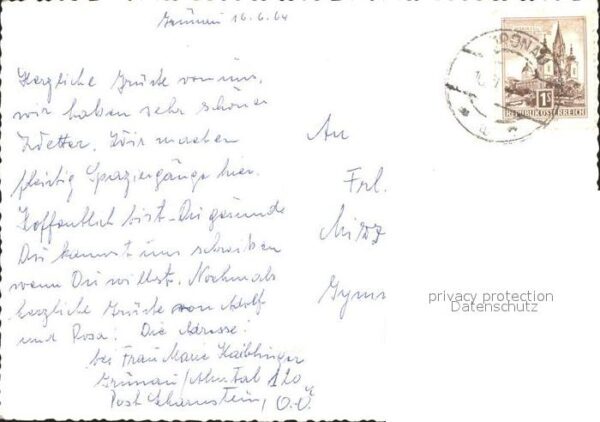 Grünau 16.6.64
Herzliche Grüße von uns,
wir haben sehr schönes
Wetter. Wir machen
fleißig Spaziergänge hier.
Hoffentlich bist Du gesund
Du kannst uns schreiben
wenn Du willst. Nochmals
herzliche Grüße von Adolf
und Rosa! Die Adresse:
bei Frau Marie Kaiblinger
Grünau/Almtal 120
Post Scharnstein, O.Ö.
An
Frl.
Mitzi
Gym
1S
REPUBLIK ÖSTERREICH
privacy protection
Datenschutz